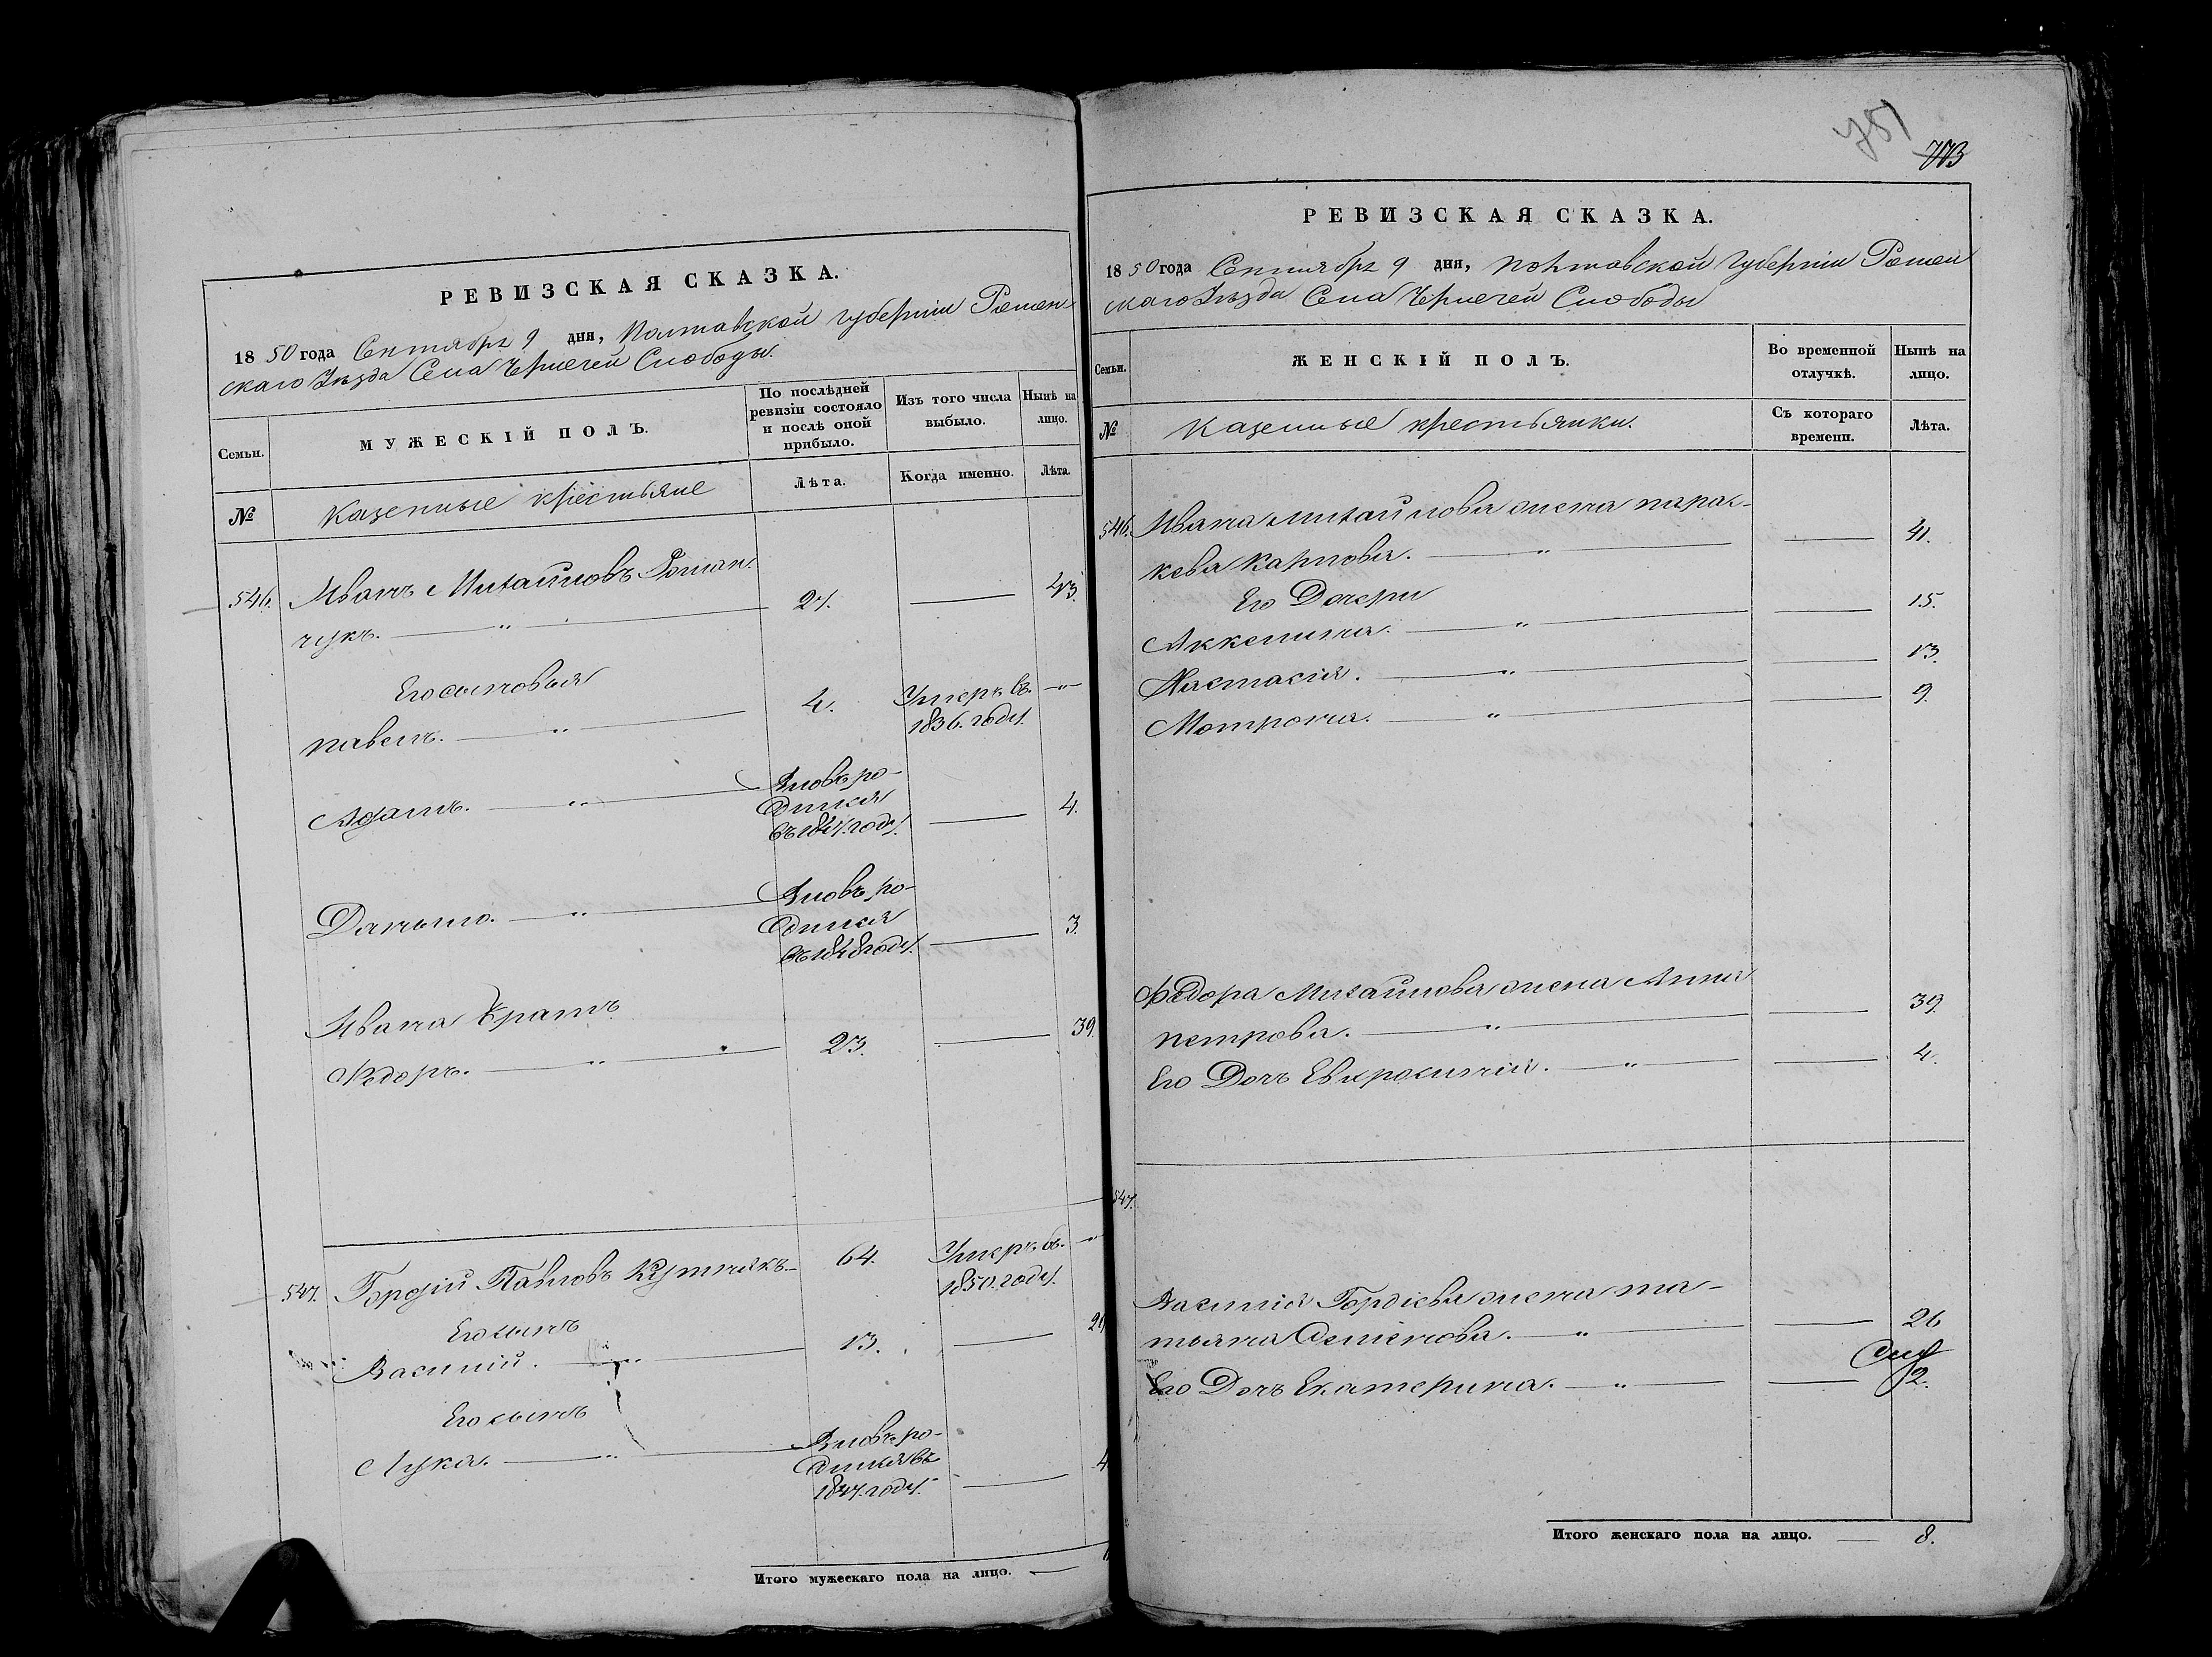 РЕВИЗСКАЯ СКАЗКА.
1850 года Сентября 9 дня, Полтавской губерніи Ромен
скаго Уѣзда Села Чернечей Слободы.
Семьи. МУЖЕСКІЙ ПОЛЪ. По послѣдней ревизіи состояло и послѣ оной прибыло. Изъ того числа выбыло. Нынѣ на лицо.
№ Казенные крестьяне Лѣта. Когда именно. Лѣта.
546. Иванъ Михайловъ Роман
чукъ. — " — 27. — 43.
Его сыновья
Павелъ. — " — 4. Умеръ въ — " —
1836. году.
Адамъ. — " — Вновь ро-
дился
въ 1847. году. — 4.
Даныло. — " — Вновь ро-
дился
въ 1848 году. — 3.
Ивана братъ
Федоръ. — " — 23. — 39.
547. Гордій Павловъ Кутнякъ — 64. Умеръ въ — "
1850. году.
Его сынъ
Василій. — " — 13. — 29
Его сынъ
Лука. — " — Вновь ро-
дился въ
1847. году. — 4
Итого мужескаго пола на лицо. —
751
773
РЕВИЗСКАЯ СКАЗКА.
1850 года Сентября 9 дня, Полтавской губерніи Ромен
скаго Уѣзда Села Чернечей Слободы
Семьи. ЖЕНСКІЙ ПОЛЪ. Во временной отлучкѣ. Нынѣ на лицо.
№ Казенные крестьянки. Съ котораго времени. Лѣта.
546. Ивана Михайлова жена Парас-
кева Карпова. — " — — 41.
Его Дочери
Аккелина. — " — — 15.
Настасія. — " — — 13.
Мотрона. — " — — 9.
Федора Михайлова жена Анна
Петрова. — " — — 39.
Его Дочь Евфросинія. — " — — 4.
547.
Василія Гордіева жена Та-
тьяна Семенова. — " — — 26
Его Дочь Екатерина. — " — — 2.
Итого женскаго пола на лицо. — 8.